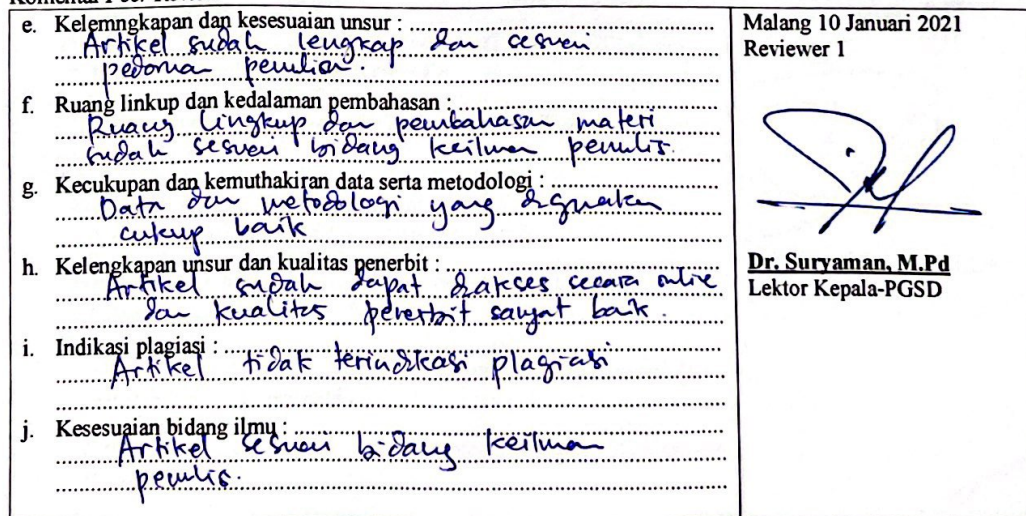 e. Kelemngkapan dan kesesuaian unsur :
Artikel sudah lengkap dan sesuai
pedoman penulian.
f. Ruang linkup dan kedalaman pembahasan :
Ruang lingkup dan pembahasan materi
sudah sesuai bidang keilmuan penulis.
g. Kecukupan dan kemuthakiran data serta metodologi :
Data dan metodologi yang digunakan
cukup baik
h. Kelengkapan unsur dan kualitas penerbit :
Artikel sudah dapat diakses secara online
dan kualitas penerbit sangat baik.
i. Indikasi plagiasi :
Artikel tidak terindikasi plagiasi
j. Kesesuaian bidang ilmu :
Artikel sesuai bidang keilmuan
penulis.
Malang 10 Januari 2021
Reviewer 1
Dr. Suryaman, M.Pd
Lektor Kepala-PGSD